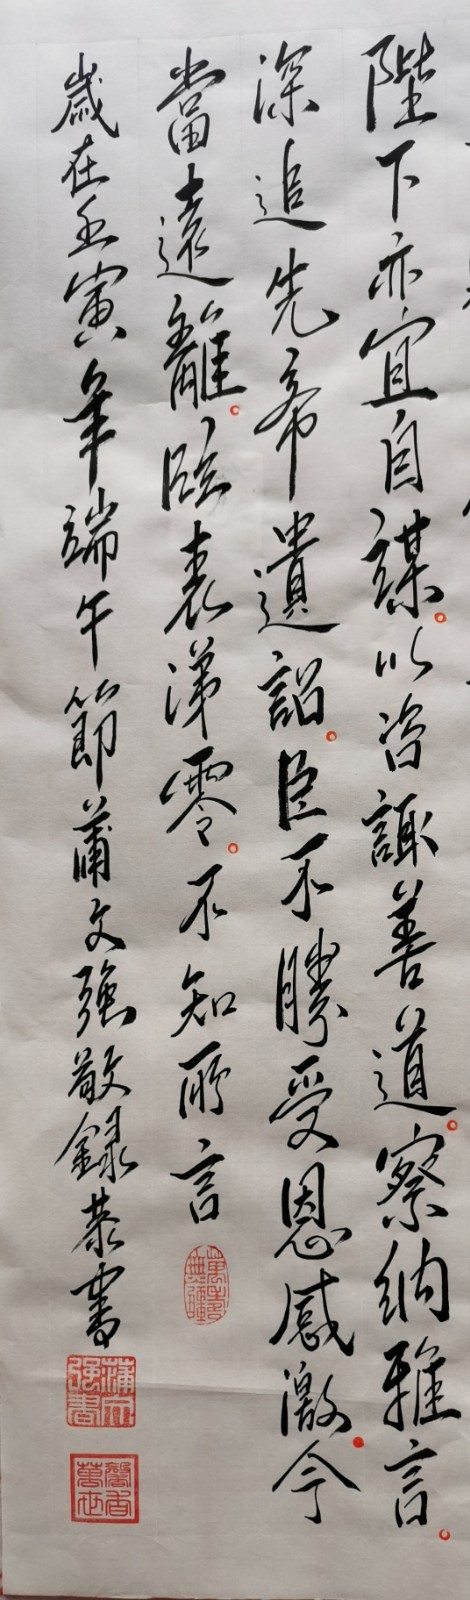 陛下亦宜自謀。以咨諏善道。察納雅言。
深追先帝遺詔。臣不勝受恩感激。今
當遠離。臨表涕零。不知所言
歲在壬寅年端午節蒲文強敬錄恭書
蒲文强書
馨香萬世